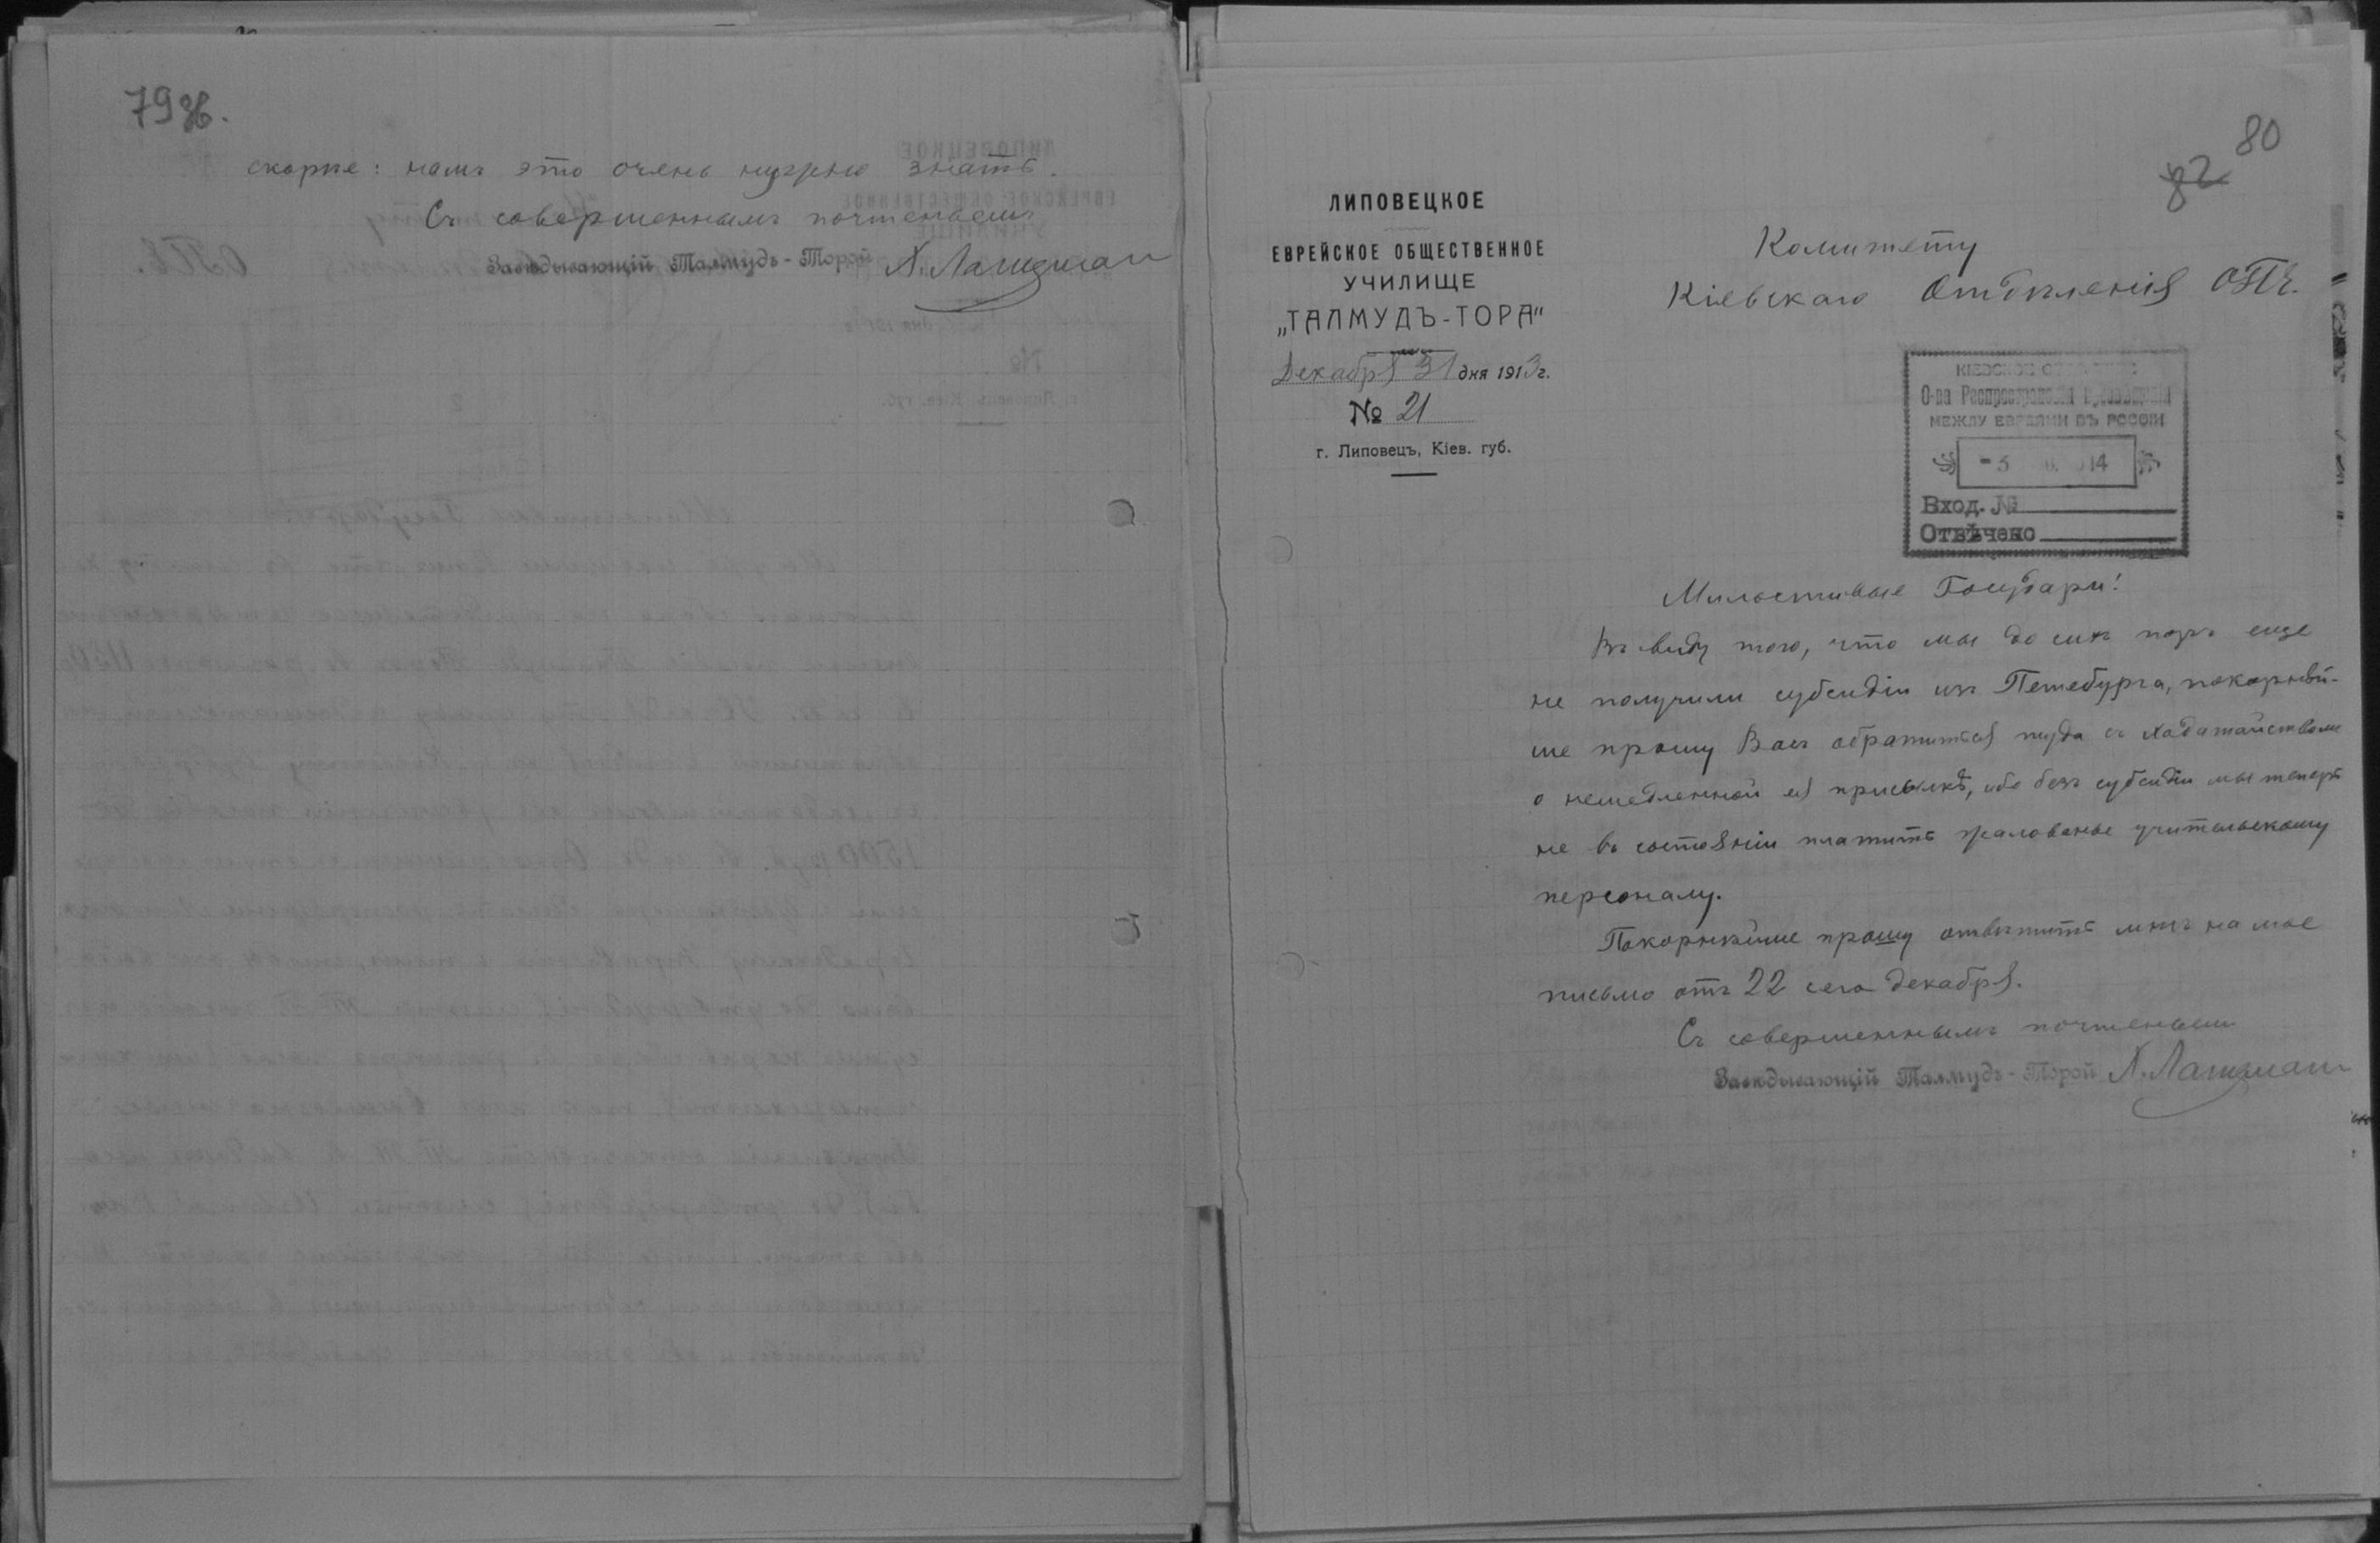 79 об.
скорѣе: намъ это очень нужно знать.
Съ совершеннымъ почтеніемъ
Завѣдывающій Талмудъ-Торой
80
82
ЛИПОВЕЦКОЕ
ЕВРЕЙСКОЕ ОБЩЕСТВЕННОЕ
УЧИЛИЩЕ
„ТАЛМУДЪ-ТОРА"
Декабря 31 дня 1913 г.
№ 21
г. Липовецъ, Кіев. губ.
Комитету
Кіевскаго Отдѣленія ОПЕ.
О-ва Распространенія Просвѣщенія
МЕЖДУ ЕВРЕЯМИ ВЪ РОССІИ
Вход. №
Отвѣчено
Милостивые Государи!
Въ виду того, что мы до сихъ поръ еще
не получили субсидіи изъ Петебурга, покорнѣй-
ше прошу Васъ обратиться туда съ ходатайствомъ
о немедленной ея присылкѣ, ибо безъ субсидіи мы теперь
не въ состояніи платить жалованье учительскому
персоналу.
Покорнѣйше прошу отвѣтить мнѣ на мое
письмо отъ 22 сего декабря.
Съ совершеннымъ почтеніемъ
Завѣдывающій Талмудъ-Торой